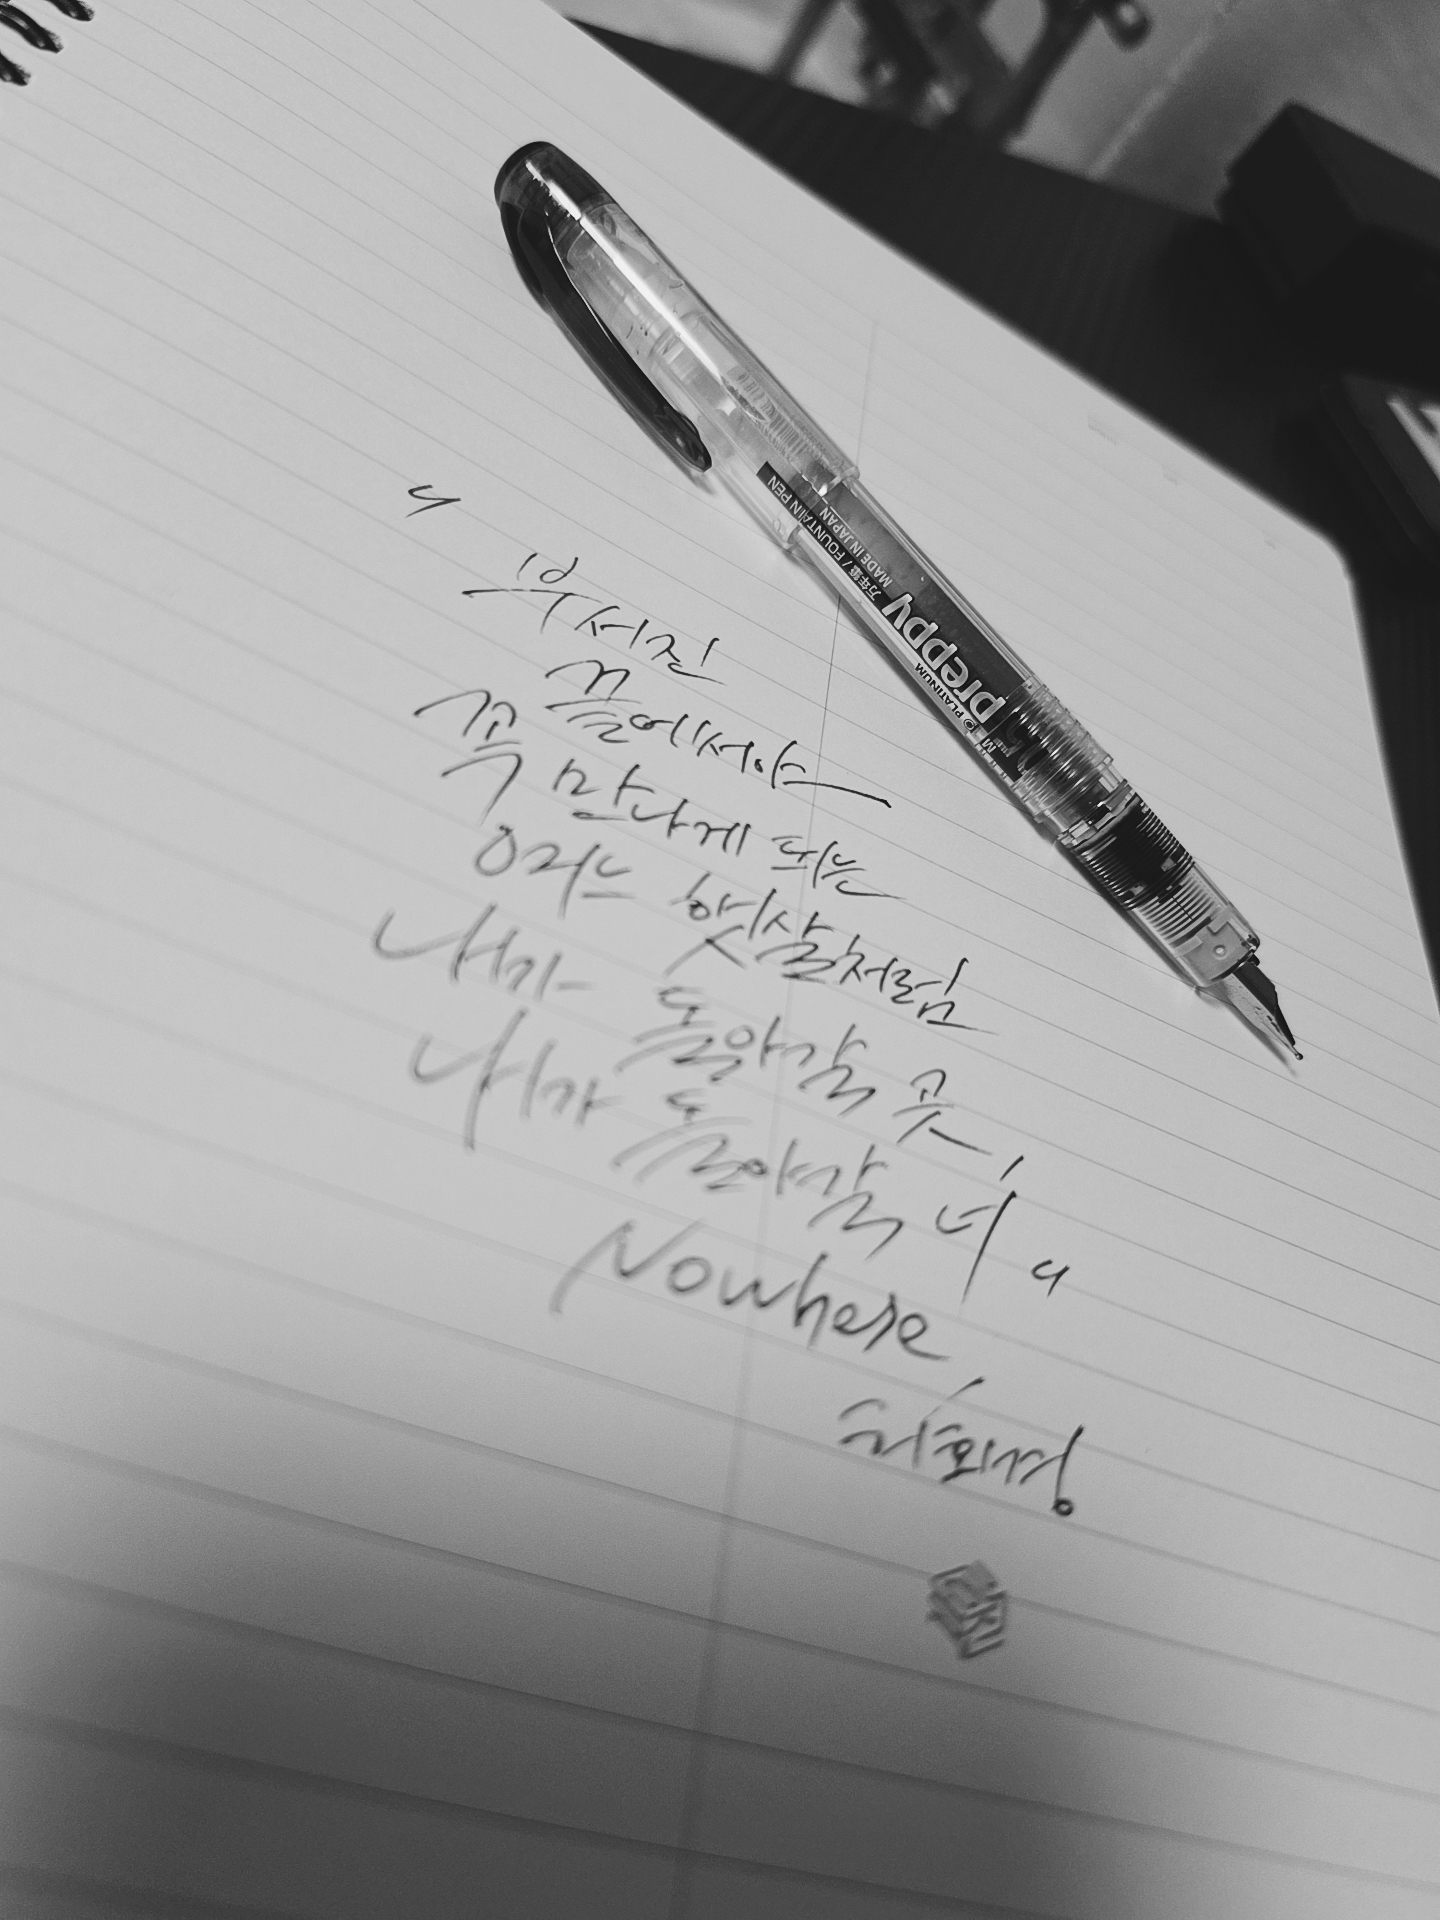 preppy
PLATINUM
万年筆 / FOUNTAIN PEN
MADE IN JAPAN
"
부서진
끝에서야
꼭 만나게 되는
오라는 햇살처럼
내가 돌아갈 곳,
내가 돌아갈 너"
Nowhere
허회경